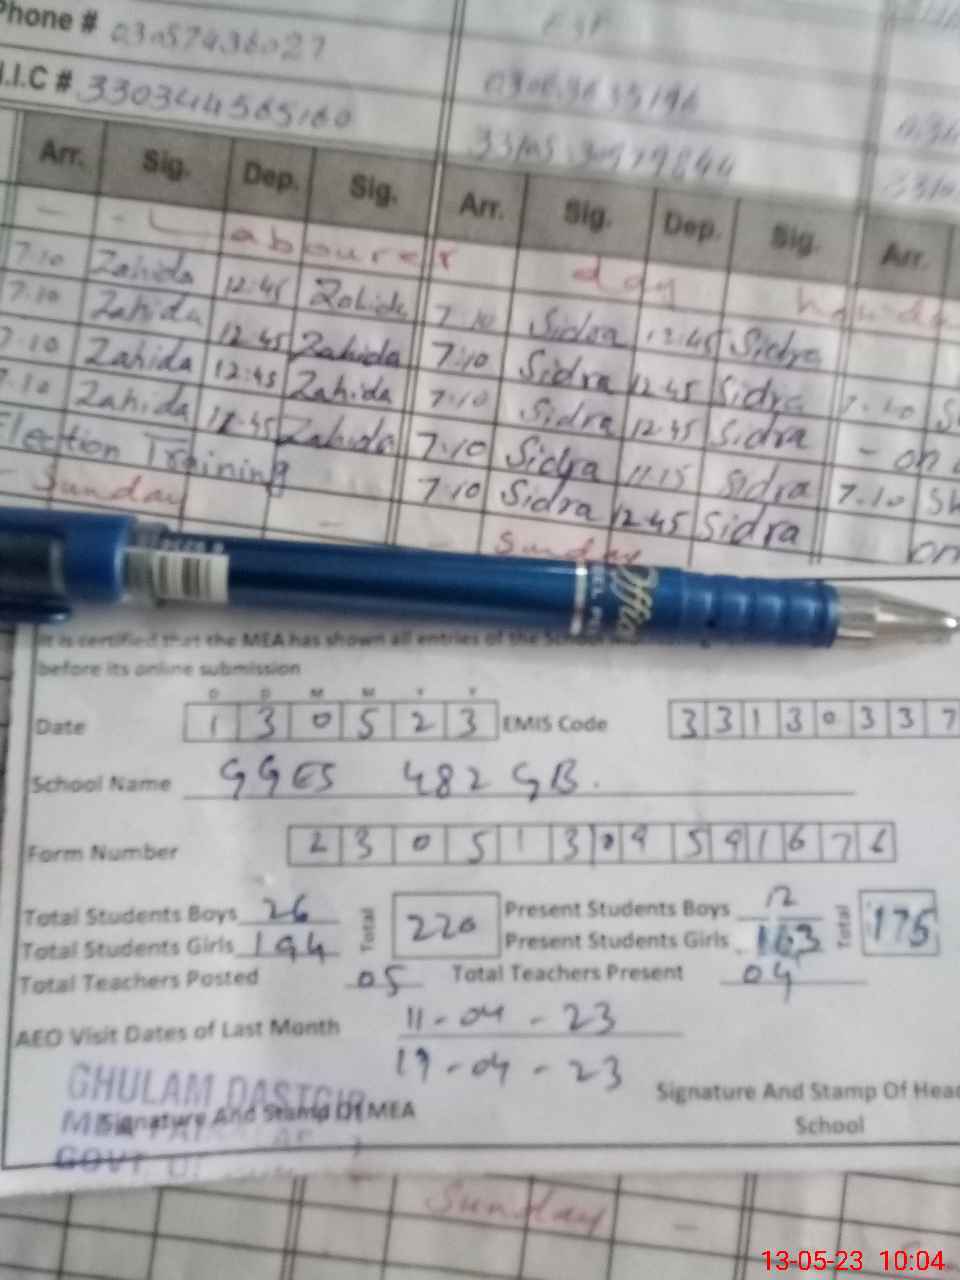 Phone # 03057436027
I.C # 330344565160
Arr. Sig. Dep. Sig. Arr. Sig. Dep. Sig. Arr.
- - Labourer day
7:10 Zahida 12:45 Zahida 7:10 Sidra 12:45 Sidra
7:10 Zahida 12:45 Zahida 7:10 Sidra 12:45 Sidra 7:10
7:10 Zahida 12:45 Zahida 7:10 Sidra 12:45 Sidra - on
7:10 Zahida 12:45 Zahida 7:10 Sidra 11:15 Sidra 7:10 Sh
Election Training 7:10 Sidra 12:45 Sidra on
- Sunday - - Sunday
Office
It is certified that the MEA has shown all entries of the School
before its online submission
D D M M Y Y
Date 1 3 0 5 2 3 EMIS Code 3 3 1 3 0 3 3 7
School Name GGES 482 GB.
Form Number 2 3 0 5 1 3 0 9 5 9 1 6 7 6
Total Students Boys 26 Total 220 Present Students Boys 12 Total 175
Total Students Girls 194 Present Students Girls 163
Total Teachers Posted 05 Total Teachers Present 04
AEO Visit Dates of Last Month 11-04-23
19-04-23
GHULAM DASTGIR
Signature And Stamp Of MEA
Signature And Stamp Of Head
School
GOVT. OF
Sunday -
13-05-23 10:04